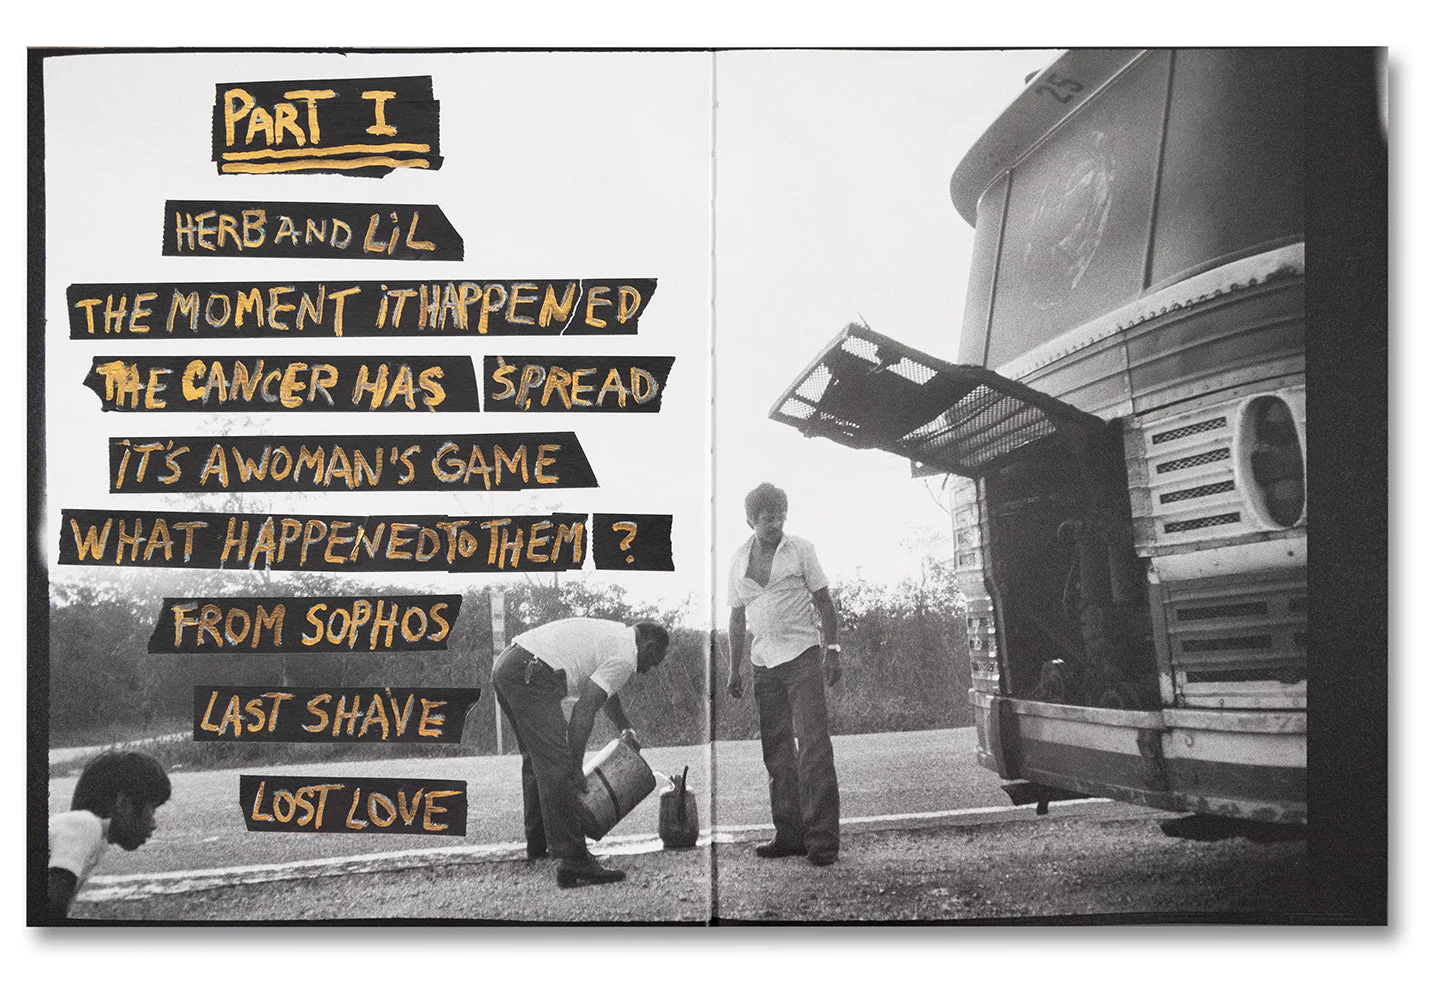 PART I
HERB AND LiL
THE MOMENT iT HAPPENED
THE CANCER HAS SPREAD
iT'S A WOMAN'S GAME
WHAT HAPPENED TO THEM ?
FROM SOPHOS
LAST SHAVE
LOST LOVE
25